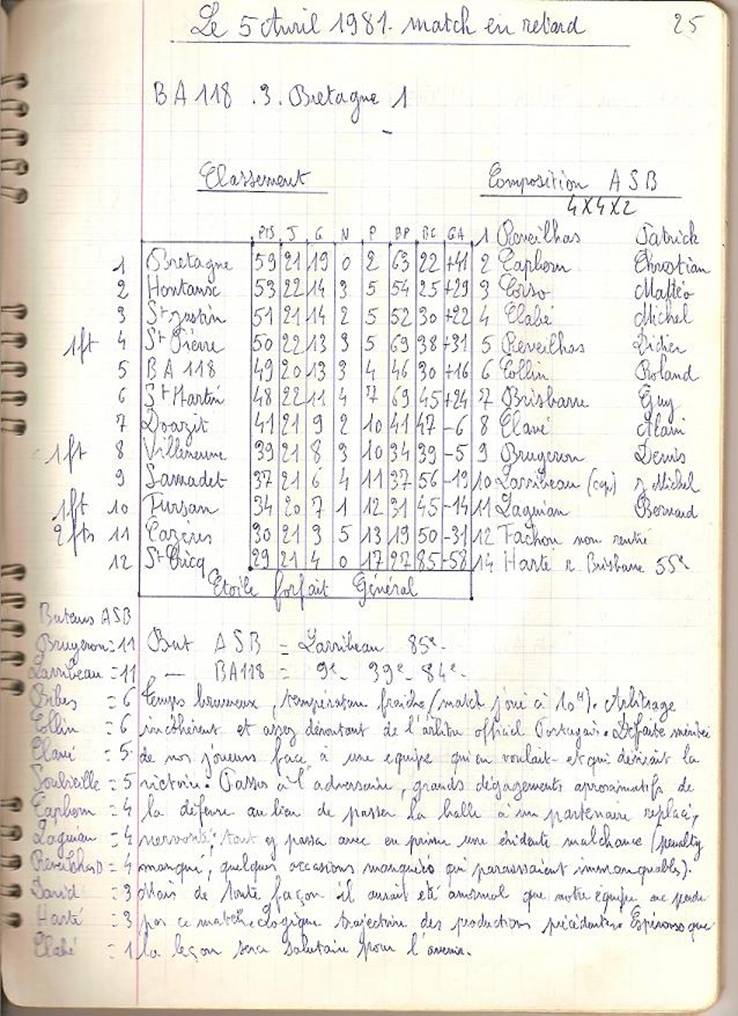 Le 5 Avril 1981. match en retard 25
BA 118 . 3 . Bretagne 1
Classement
Composition ASB
4X4X2
Pts J G N P BP BC GA
1 Reveilhas Patrick
1 Bretagne 59 21 19 0 2 63 22 +41
2 Caphorn Christian
2 Hontanx 53 22 14 3 5 54 25 +29
3 Corso Mattéo
3 St Justin 51 21 14 2 5 52 30 +22
4 Clabé Michel
1ft 4 St Pierre 50 22 13 3 5 69 38 +31
5 Reveilhas Didier
5 BA 118 49 20 13 3 4 46 30 +16
6 Collin Roland
6 St Martin 48 22 11 4 7 69 45 +24
7 Brisbarre Guy
7 Doazit 41 21 9 2 10 41 47 -6
8 Clavé Alain
1ft 8 Villeneuve 39 21 8 3 10 34 39 -5
9 Brugeron Denis
9 Samadet 37 21 6 4 11 37 56 -19
10 Larribeau (cap) J. Michel
1ft 10 Tursan 34 20 7 1 12 31 45 -14
11 Laguian Bernard
2fts 11 Cazères 30 21 3 5 13 19 50 -31
12 Tachon non rentré
12 St Cricq 29 21 4 0 17 27 85 -58
14 Harté r. Brisbarre 55e
Etoile forfait Général
Buteurs ASB
Brugeron = 11
Larribeau = 11
Bibes = 6
Collin = 6
Clavé = 5
Soubieille = 5
Caphorn = 4
Laguian = 4
Reveilhas D = 4
David = 3
Harté = 3
Clabé = 1
But ASB = Larribeau 85e.
— BA118 = 9e. 39e. 84e.
Temps brumeux, température fraîche (match joué à 10H). Arbitrage
incohérent et assez déroutant de l'arbitre officiel Portugais. Défaite méritée
de nos joueurs face à une équipe qui en voulait et qui désirait la
victoire. Passes à l'adversaire, grands dégagements aproximatifs de
la défense au lieu de passer la balle à un partenaire replacé,
nervosité; tout y passa avec en prime une évidente malchance (penalty
manqué, quelques occasions manquées qui paraissaient immanquables).
Mais de toute façon il aurait été anormal que notre équipe ne perde
pas ce match. Logique trajectoire des productions précédentes. Espérons que
la leçon sera salutaire pour l'avenir.